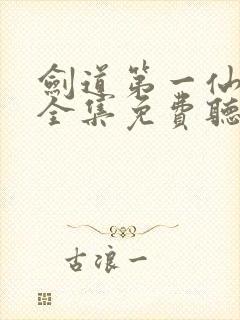 劍道第一仙
全集免費聽
古浪一